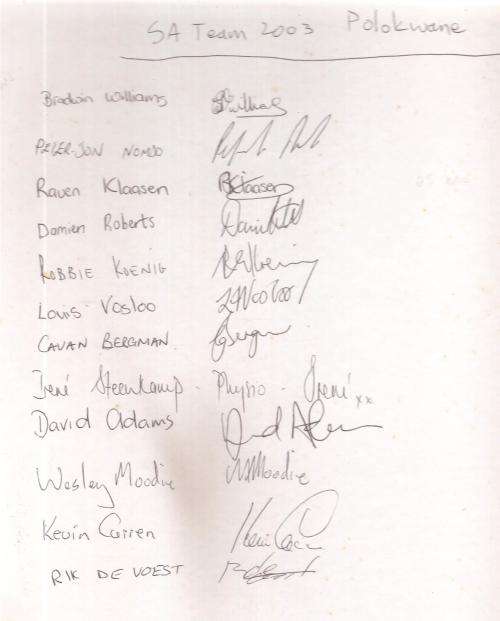 SA Team 2003 Polokwane
Bradwin Williams
PETER-JON NOMDO
Raven Klaasen RKlaasen
Damien Roberts
ROBBIE KOENIG
Louis Vosloo
CAVAN BERGMAN
Irené Steenkamp - Physio - Irené xx
David Adams
Wesley Moodie WMoodie
Kevin Curren
RIK DE VOEST